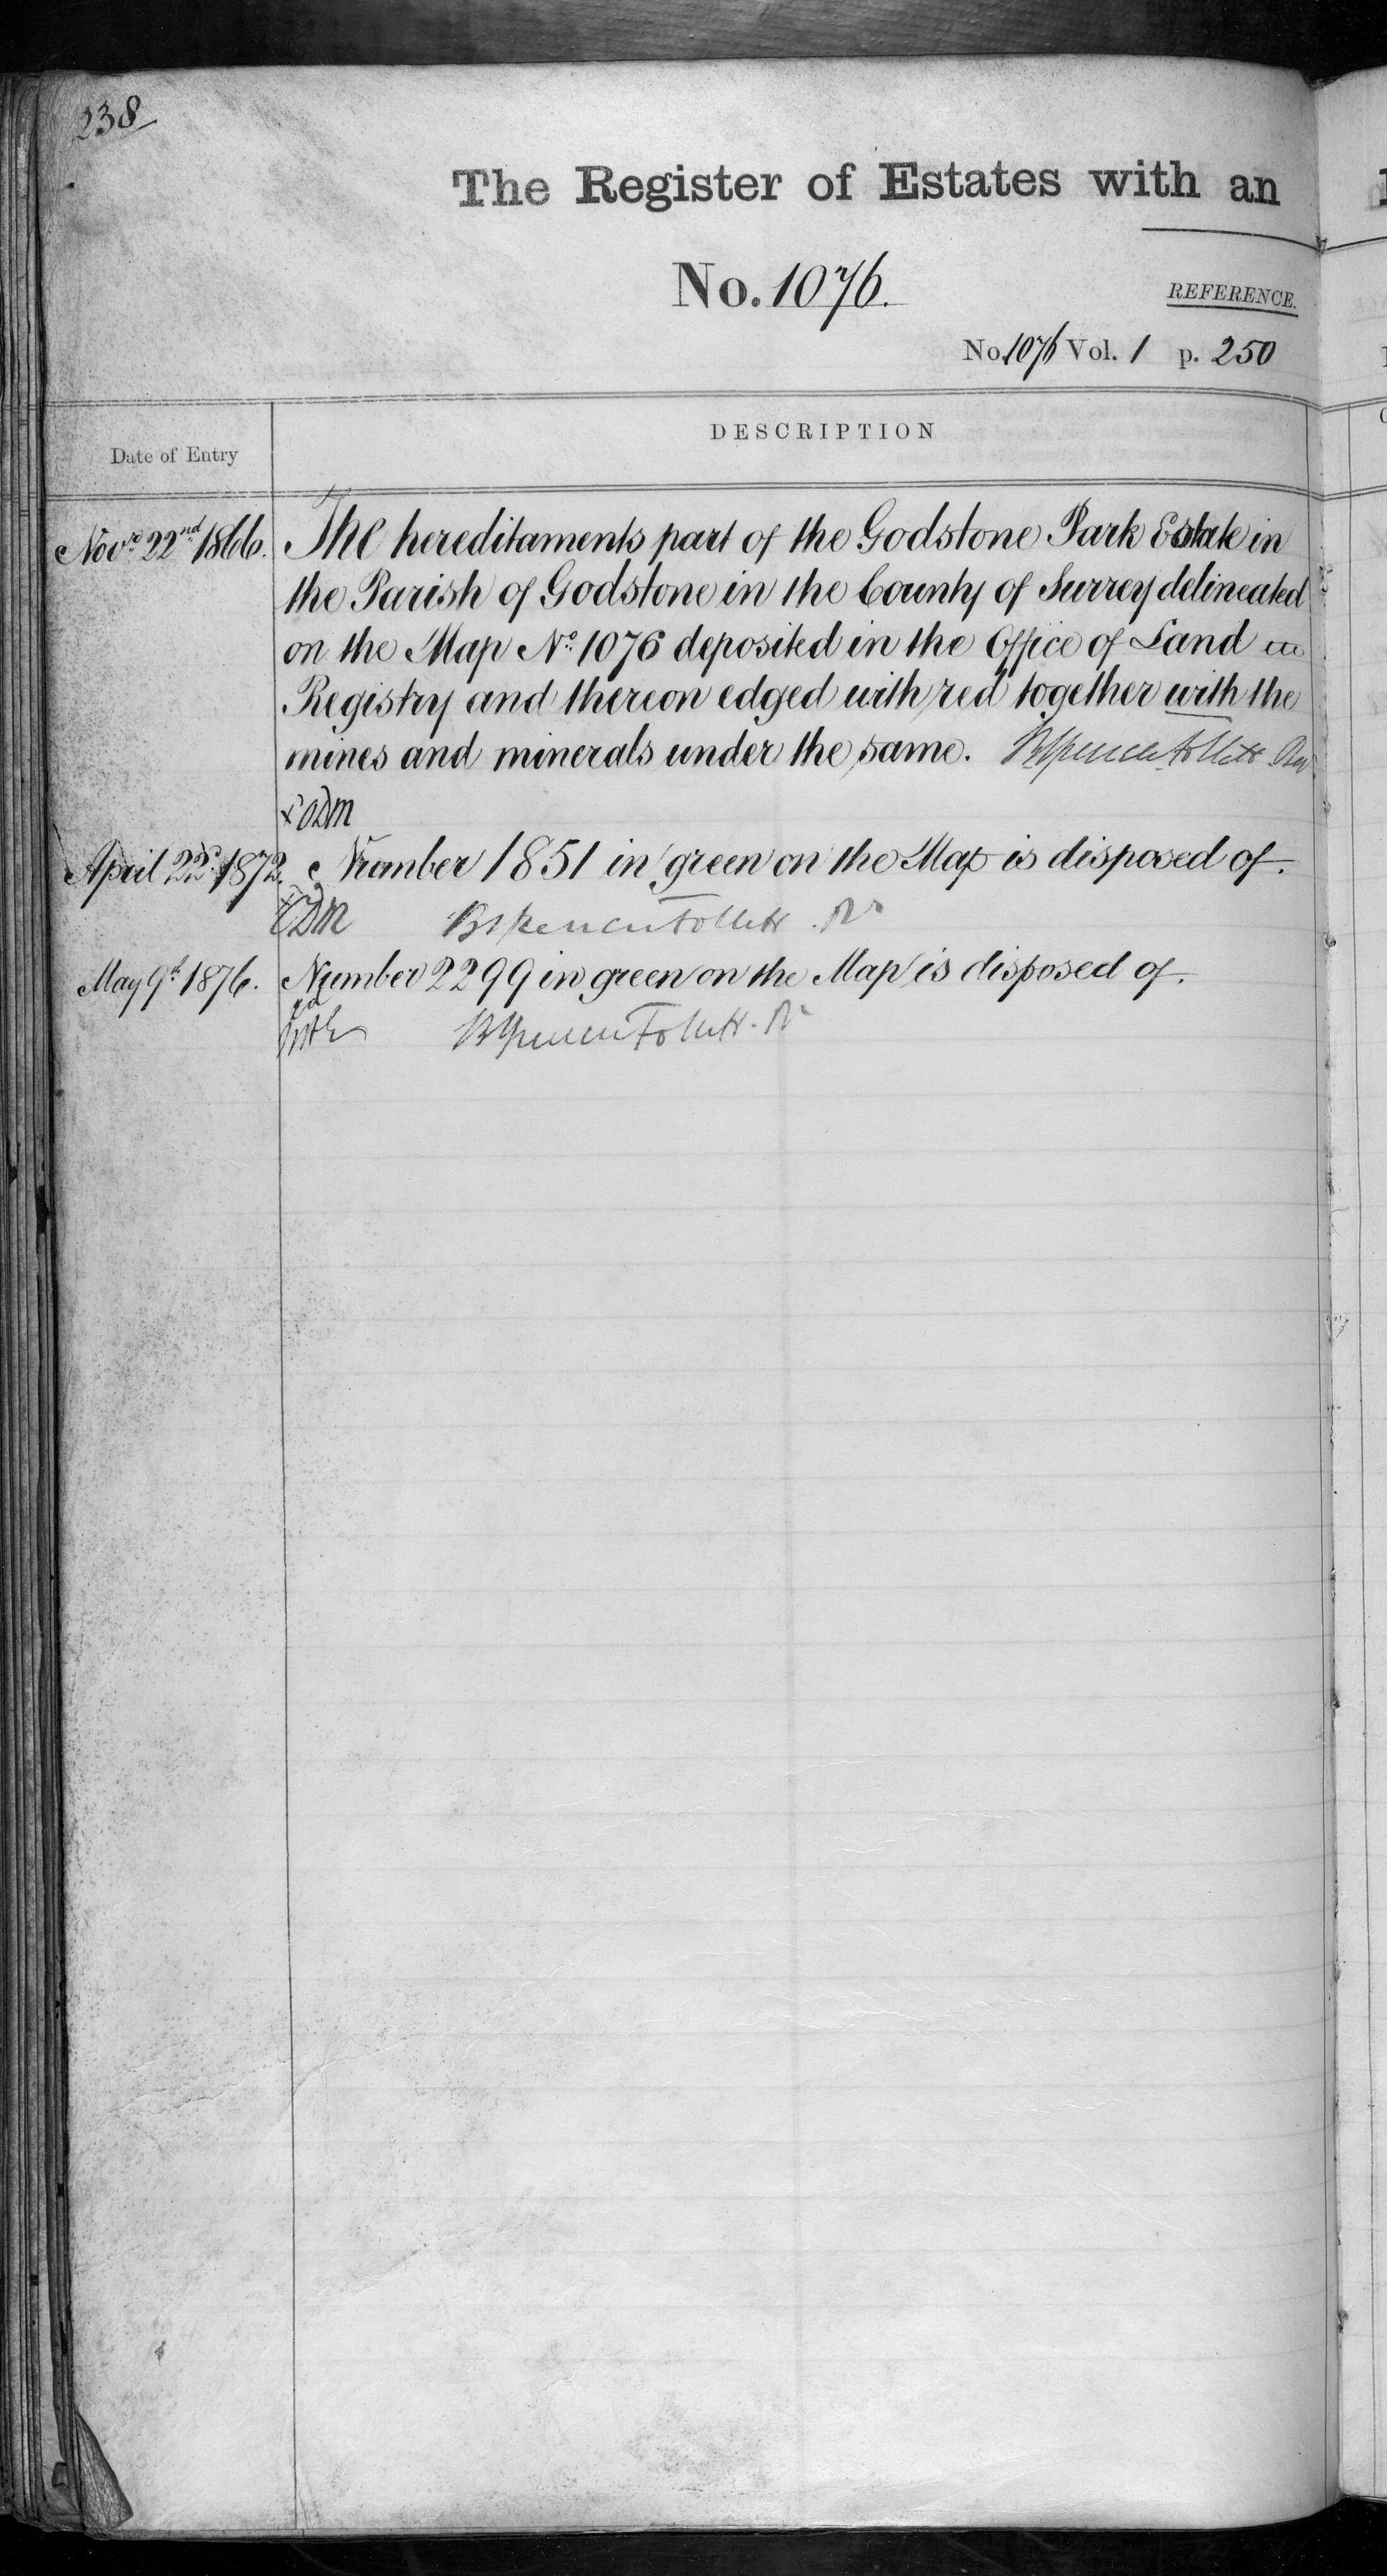 238
The Register of Estates with an
No. 1076.
REFERENCE.
No. 1076 Vol. 1 p. 250
Date of Entry
DESCRIPTION
Novr. 22nd 1866. The hereditaments part of the Godstone Park Estate in
the Parish of Godstone in the County of Surrey delineated
on the Map No. 1076 deposited in the Office of Land
Registry and thereon edged with red together with the
mines and minerals under the same. BSpence Follett
April 22d. 1872. Number 1851 in green on the Map is disposed of.
BSpence Follett . Rr
May 9th 1876. Number 2299 in green on the Map is disposed of.
BSpence Follett. Rr